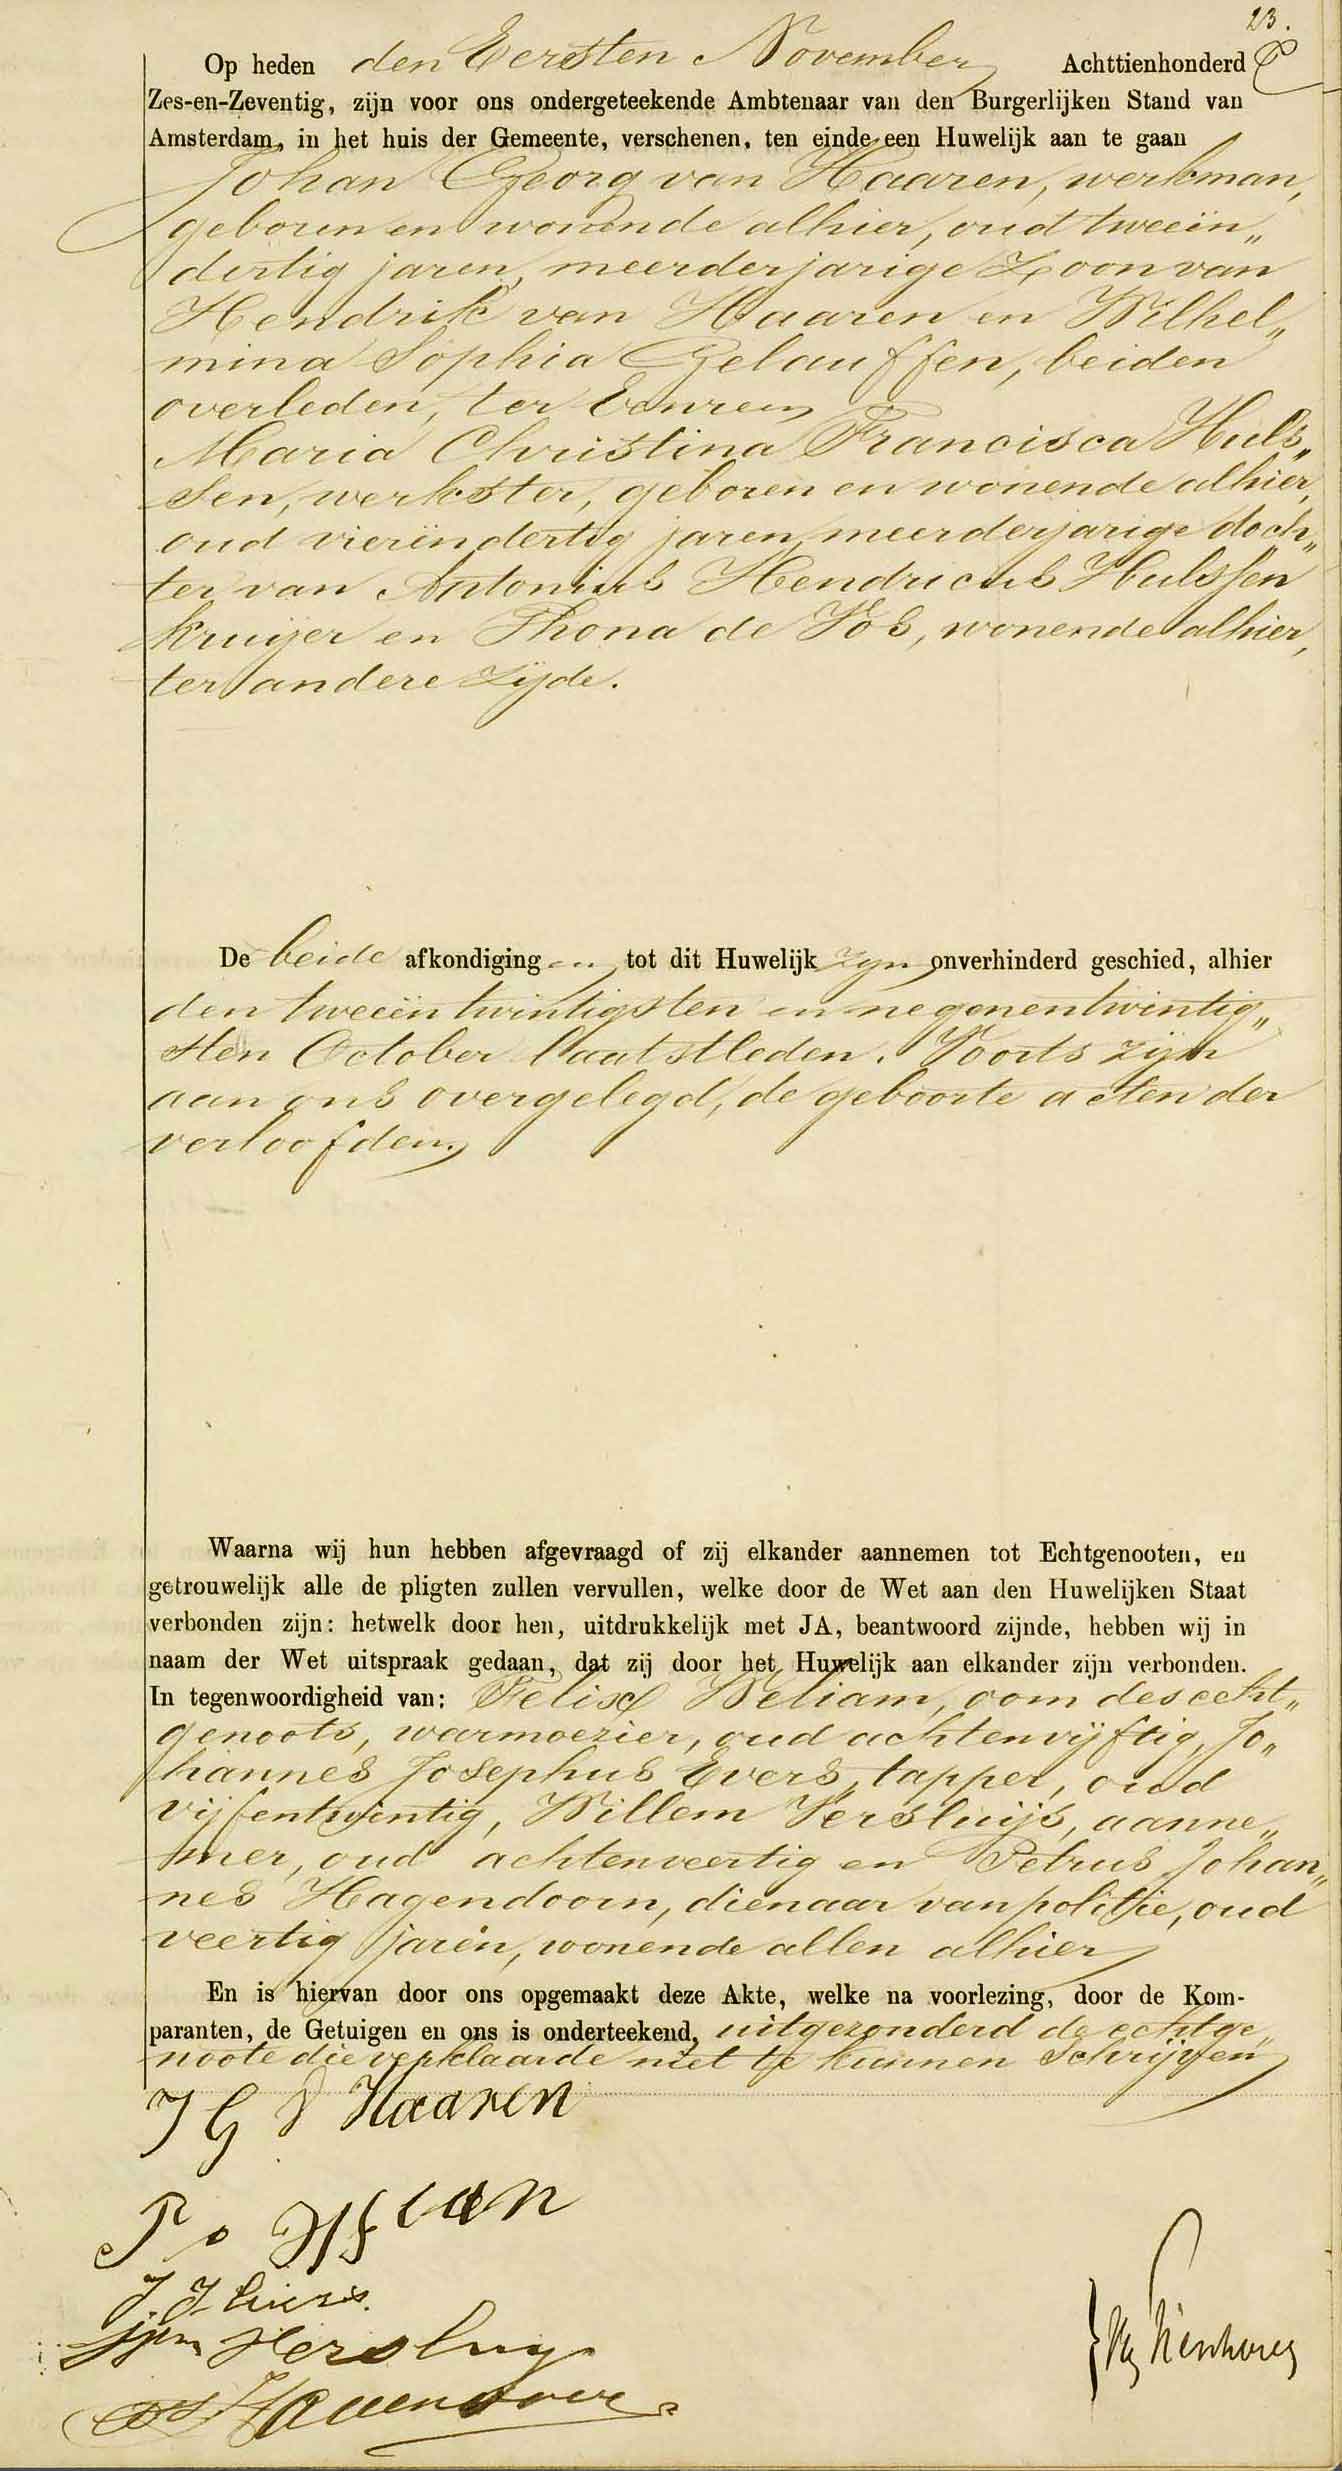 23.
Op heden den Eersten November Achttienhonderd
Zes-en-Zeventig, zijn voor ons ondergeteekende Ambtenaar van den Burgerlijken Stand van
Amsterdam, in het huis der Gemeente, verschenen, ten einde een Huwelijk aan te gaan
Johan Georg van Haaren, werkman,
geboren en wonende alhier, oud tweeën„
dertig jaren, meerderjarige Zoon van
Hendrik van Haaren en Wilhel„
mina Sophia Gelauffen, beiden
overleden, ter Eenre en
Maria Christina Francisca Huls„
sen, werkster, geboren en wonende alhier,
oud vierëndertig jaren, meerderjarige doch„
ter van Antonius Hendricus Hulssen
kruijer en Thona de Vos, wonende alhier,
ter andere zijde.
De beide afkondigingen tot dit Huwelijk zyn onverhinderd geschied, alhier
den tweeëntwintigsten en negenentwintig„
sten October laatstleden. Voorts zijn
aan ons overgelegd, de geboorte acten der
verloofden.
Waarna wij hun hebben afgevraagd of zij elkander aannemen tot Echtgenooten, en
getrouwelijk alle de pligten zullen vervullen, welke door de Wet aan den Huwelijken Staat
verbonden zijn: hetwelk door hen, uitdrukkelijk met JA, beantwoord zijnde, hebben wij in
naam der Wet uitspraak gedaan, dat zij door het Huwelijk aan elkander zijn verbonden.
In tegenwoordigheid van: Felix Weliam, oom des echt„
genoots, warmoezier, oud achtenvijftig, Jo„
hannes Josephus Evers, tapper, oud
vijfentwintig, Willem Versluijs, aanne„
mer, oud achtenveertig en Petrus Johan„
nes Hagendoorn, dienaar van politie, oud
veertig jaren, wonende allen alhier
En is hiervan door ons opgemaakt deze Akte, welke na voorlezing, door de Kom-
paranten, de Getuigen en ons is onderteekend, uitgezonderd de echtge„
noote die verklaarde niet te kunnen Schrijven
J G V Haaren
J. J. Evers.
Wm Versluys